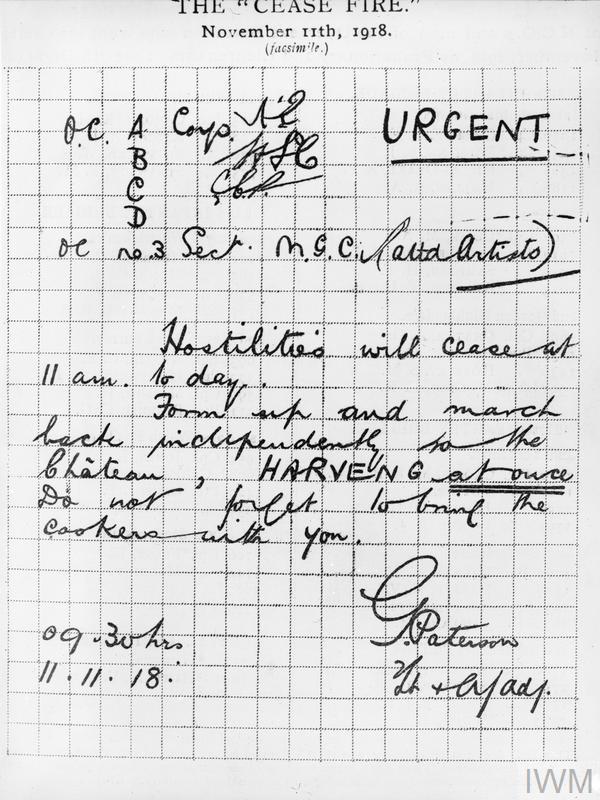 THE "CEASE FIRE."
November 11th, 1918.
(facsimile.)
O.C. A Coys. URGENT
B
C
D
OC no. 3 Sect. M.G.C. (attd Artists)
Hostilities will cease at
11 am. to day.
Form up and march
back independently to the
Château, HARVENG at once
Do not forget to bring the
cookers with you.
09.30 hrs G. Paterson
11.11.18. Lt + A/adj.
IWM